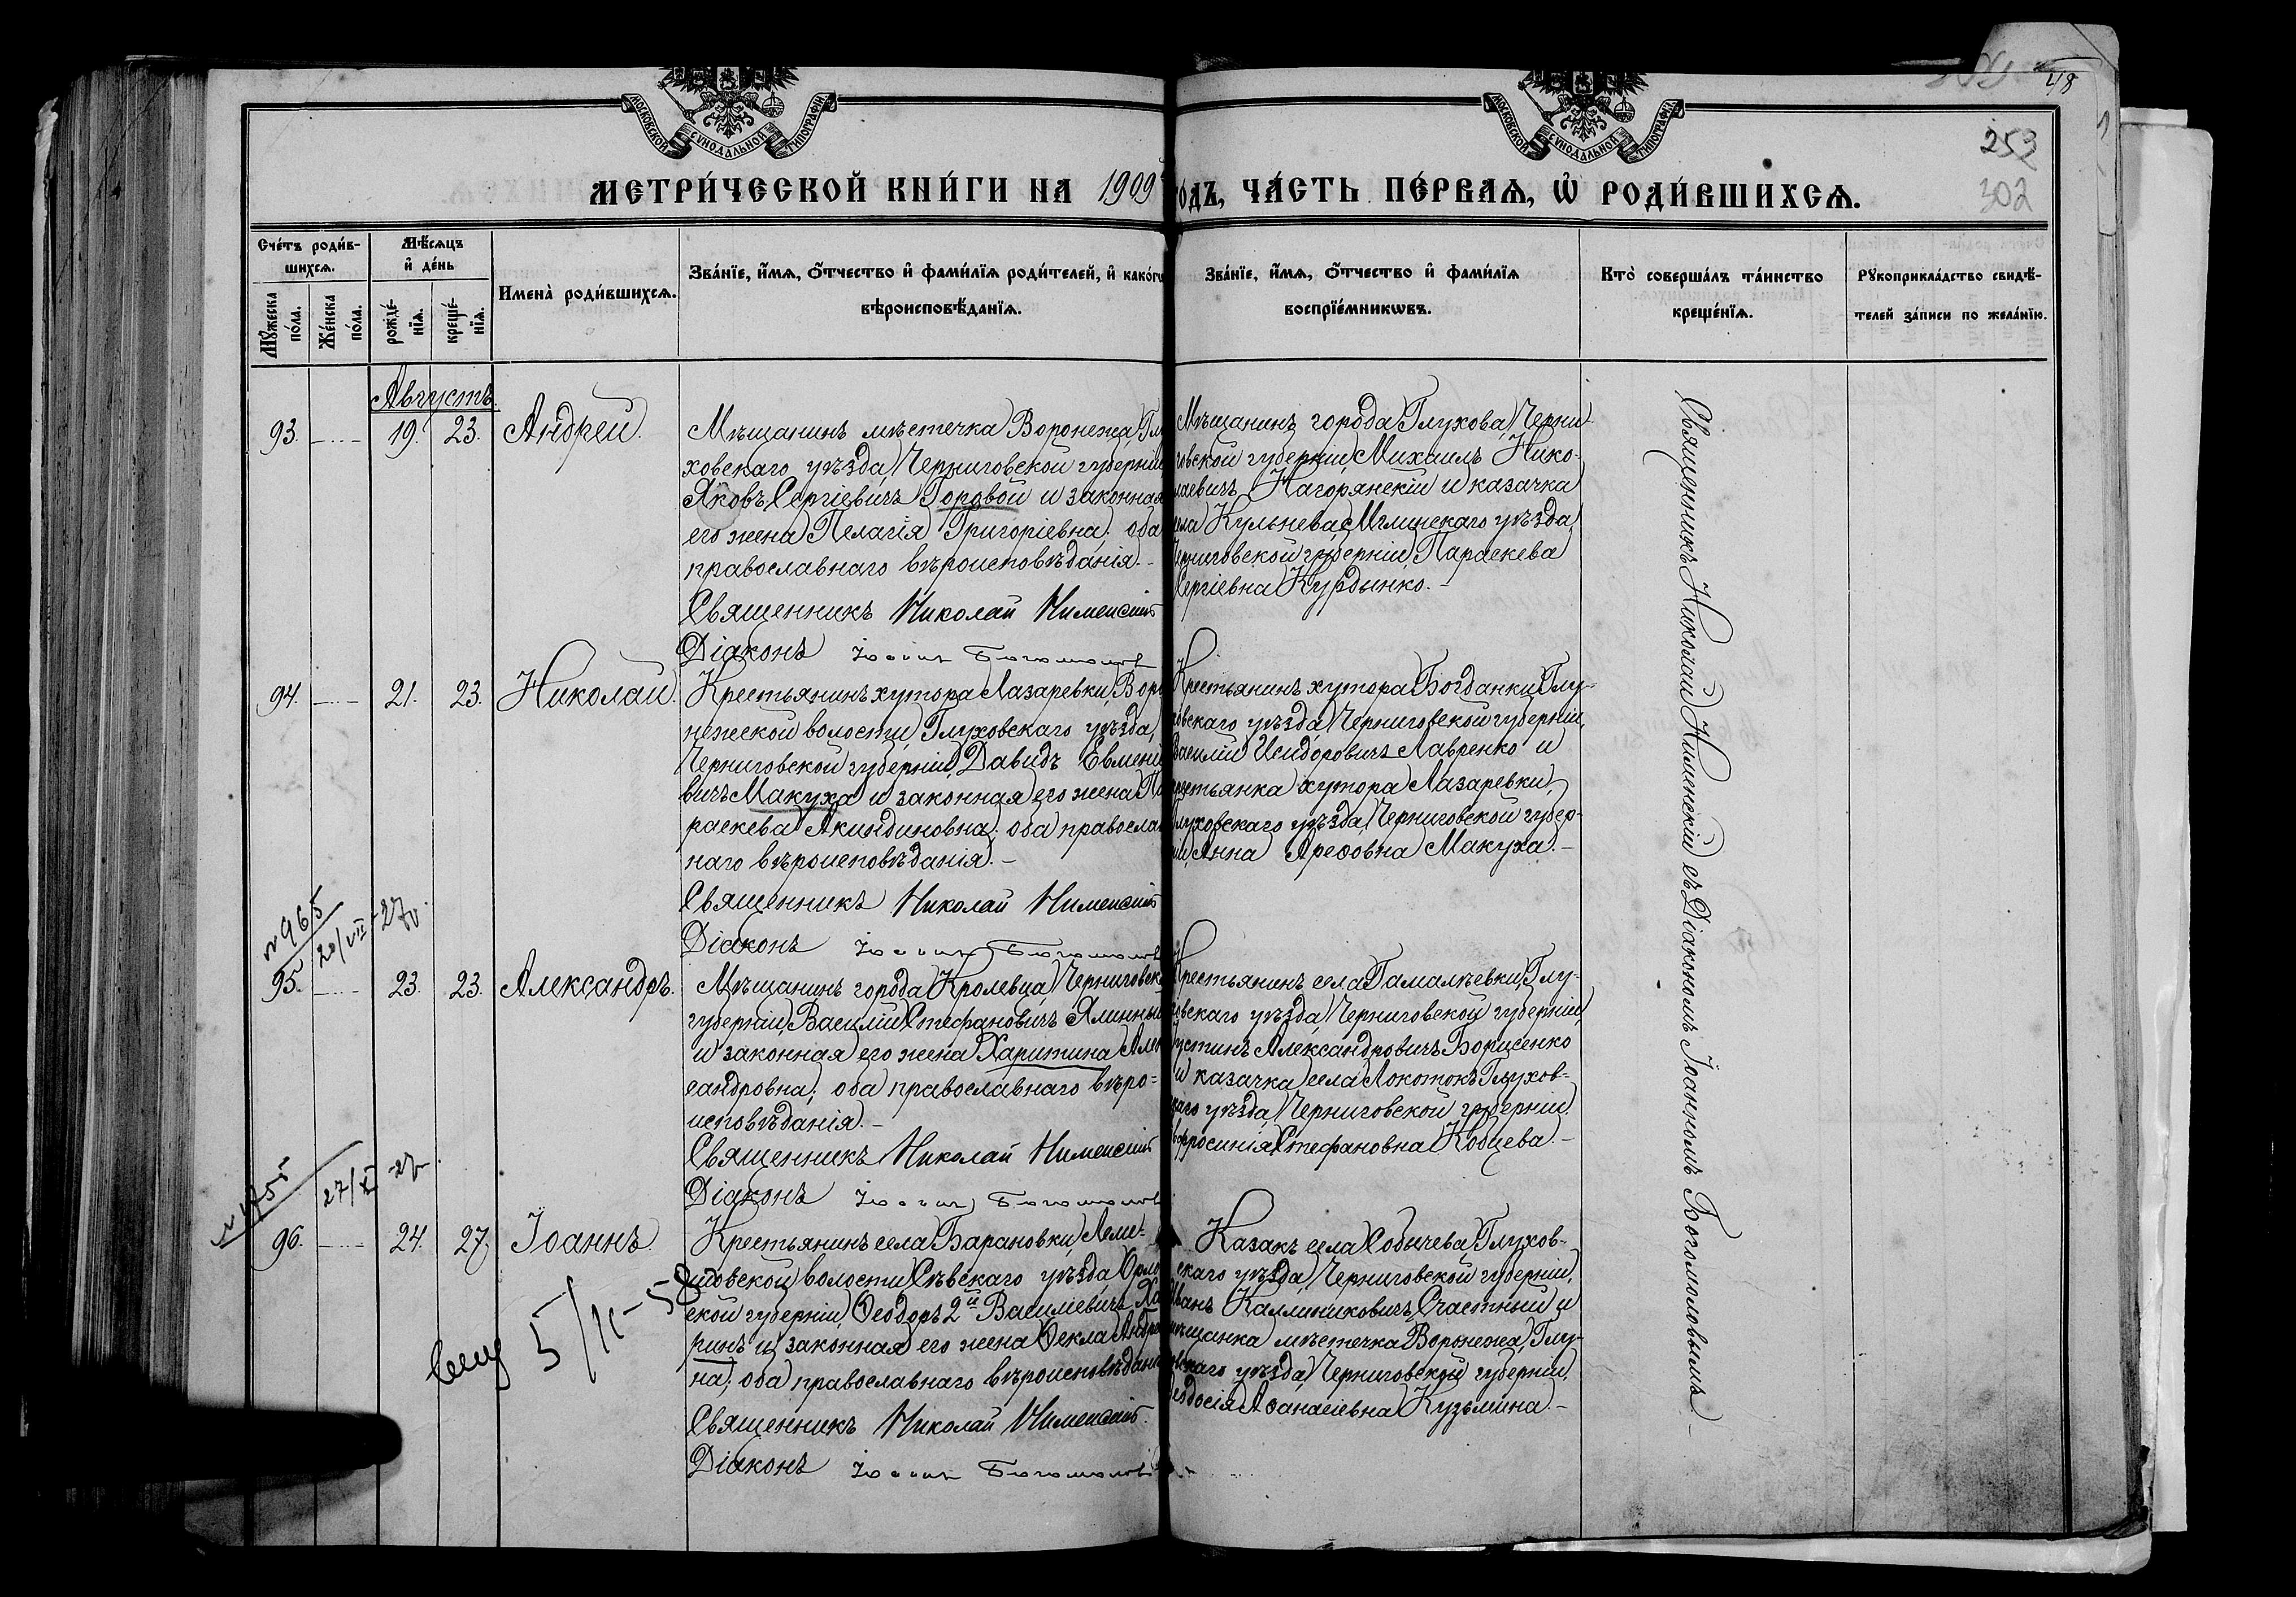 МОСКОВСКОЙ СУНОДАЛЬНОЙ ТИПОГРАФІИ
МОСКОВСКОЙ СУНОДАЛЬНОЙ ТИПОГРАФІИ
48
253
302
МЕТРИ́ЧЕСКОЙ КНИ́ГИ НА 1909
о́дъ, ЧА́СТЬ ПЕ́РВАѦ, Ѡ҆ РОДИ́ВШИХСѦ.
Сче́тъ роди́в-
шихсѧ.
Мꙋ́жеска по́ла.
Же́нска по́ла.
Мѣ́сѧцъ
и҆ де́нь
рожде́-
нїѧ.
креще́-
нїѧ.
Имена̀ роди́вшихсѧ.
Зва́нїе, и҆́мѧ, ѻ҆́тчество и҆ фами́лїѧ роди́телей, и҆ како́гѡ
вѣроисповѣ́данїѧ.
Зва́нїе, и҆́мѧ, ѻ҆́тчество и҆ фами́лїѧ
воспрїе́мникѡвъ.
Кто̀ соверша́лъ та́инство
креще́нїѧ.
Рꙋкоприкла́дство свидѣ́-
телей за́писи по жела́нїю.
Августъ.
93. 19. 23. Андрей.
Мѣщанинъ мѣстечка Воронежа, Глу
ховскаго уѣзда, Черниговской губерніи
Яковъ Сергіевичъ Горовой и законная
его жена Пелагія Григоріевна; оба
православнаго вѣроисповѣданія.-
Священникъ Николай Нименскій
Діаконъ Іоаннъ Богомоловъ
Мѣщанинъ города Глухова, Черни-
говской губерніи, Михаилъ Нико-
лаевичъ Нагорянскій и казачка
села Кульнева, Мглинскаго уѣзда,
Черниговской губерніи, Параскева
Сергіевна Курдынко.-
94. 21. 23. Николай.
Крестьянинъ хутора Лазаревки, Воро
нежской волости, Глуховскаго уѣзда,
Черниговской губерніи, Давидъ Евмені
вичъ Макуха и законная его жена Па
раскева Акиндиновна; оба православ
наго вѣроисповѣданія.-
Священникъ Николай Нименскій
Діаконъ Іоаннъ Богомоловъ
Крестьянинъ хутора Богданки, Глу-
ховскаго уѣзда, Черниговской губерніи,
Василій Исидоровичъ Лавренко и
крестьянка хутора Лазаревки,
Глуховскаго уѣзда, Черниговской губер-
ніи, Анна Арефовна Макуха.-
N 965
20/VIII-27
95. 23. 23. Александръ.
Мѣщанинъ города Кролевца, Черниговск
губерніи, Василій Стефановичъ Ялинный
и законная его жена Харитина Алек
сандровна; оба православнаго вѣро=
исповѣданія.-
Священникъ Николай Нименскій
Діаконъ Іоаннъ Богомоловъ
Крестьянинъ села Гамалѣевки, Глу-
ховскаго уѣзда, Черниговской губерніи,
Іустинъ Александровичъ Борисенко
и казачка села Локотокъ Глухов-
скаго уѣзда, Черниговской губерніи
Евфросинія Стефановна Кобцева.-
27/X 27
96. 24. 27. Іоаннъ.
5/II-58
Крестьянинъ села Барановки, Леме-
шовской волости, Сѣвскаго уѣзда, Орлов
ской губерніи, Ѳеодоръ 2й Василіевичъ Ха
ринъ и законная его жена Ѳекла Андрее
на; оба православнаго вѣроисповѣданія
Священникъ Николай Нименскій.
Діаконъ Іоаннъ Богомоловъ
Казакъ села Собычева, Глухов-
скаго уѣзда, Черниговской губерніи,
Иванъ Каллиниковичъ Счастный и
мѣщанка мѣстечка Воронежа, Глу-
ховскаго уѣзда, Черниговской губерніи,
Ѳеодосія Аѳанасіевна Кузьмина.-
Священникъ Николай Нименскій съ Діакономъ Іоанномъ Богомоловымъ.